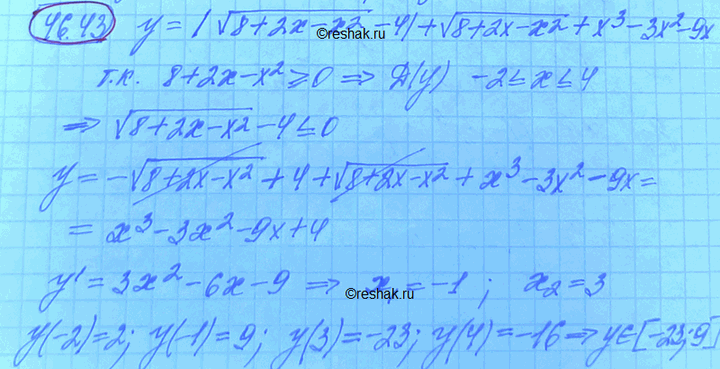 46.43) y = |√(8+2x-x²) -4| + √(8+2x-x²) + x³ - 3x² - 9x
©reshak.ru
т.к. 8+2x-x² ≥ 0 ⇒ D(y) -2 ≤ x ≤ 4
⇒ √(8+2x-x²) - 4 ≤ 0
y = -√(8+2x-x²) + 4 + √(8+2x-x²) + x³ - 3x² - 9x =
= x³ - 3x² - 9x + 4
y' = 3x² - 6x - 9 ⇒ x₁ = -1 ; x₂ = 3
©reshak.ru
y(-2)=2; y(-1)=9; y(3)=-23; y(4)=-16 ⇒ y∈[-23;9]